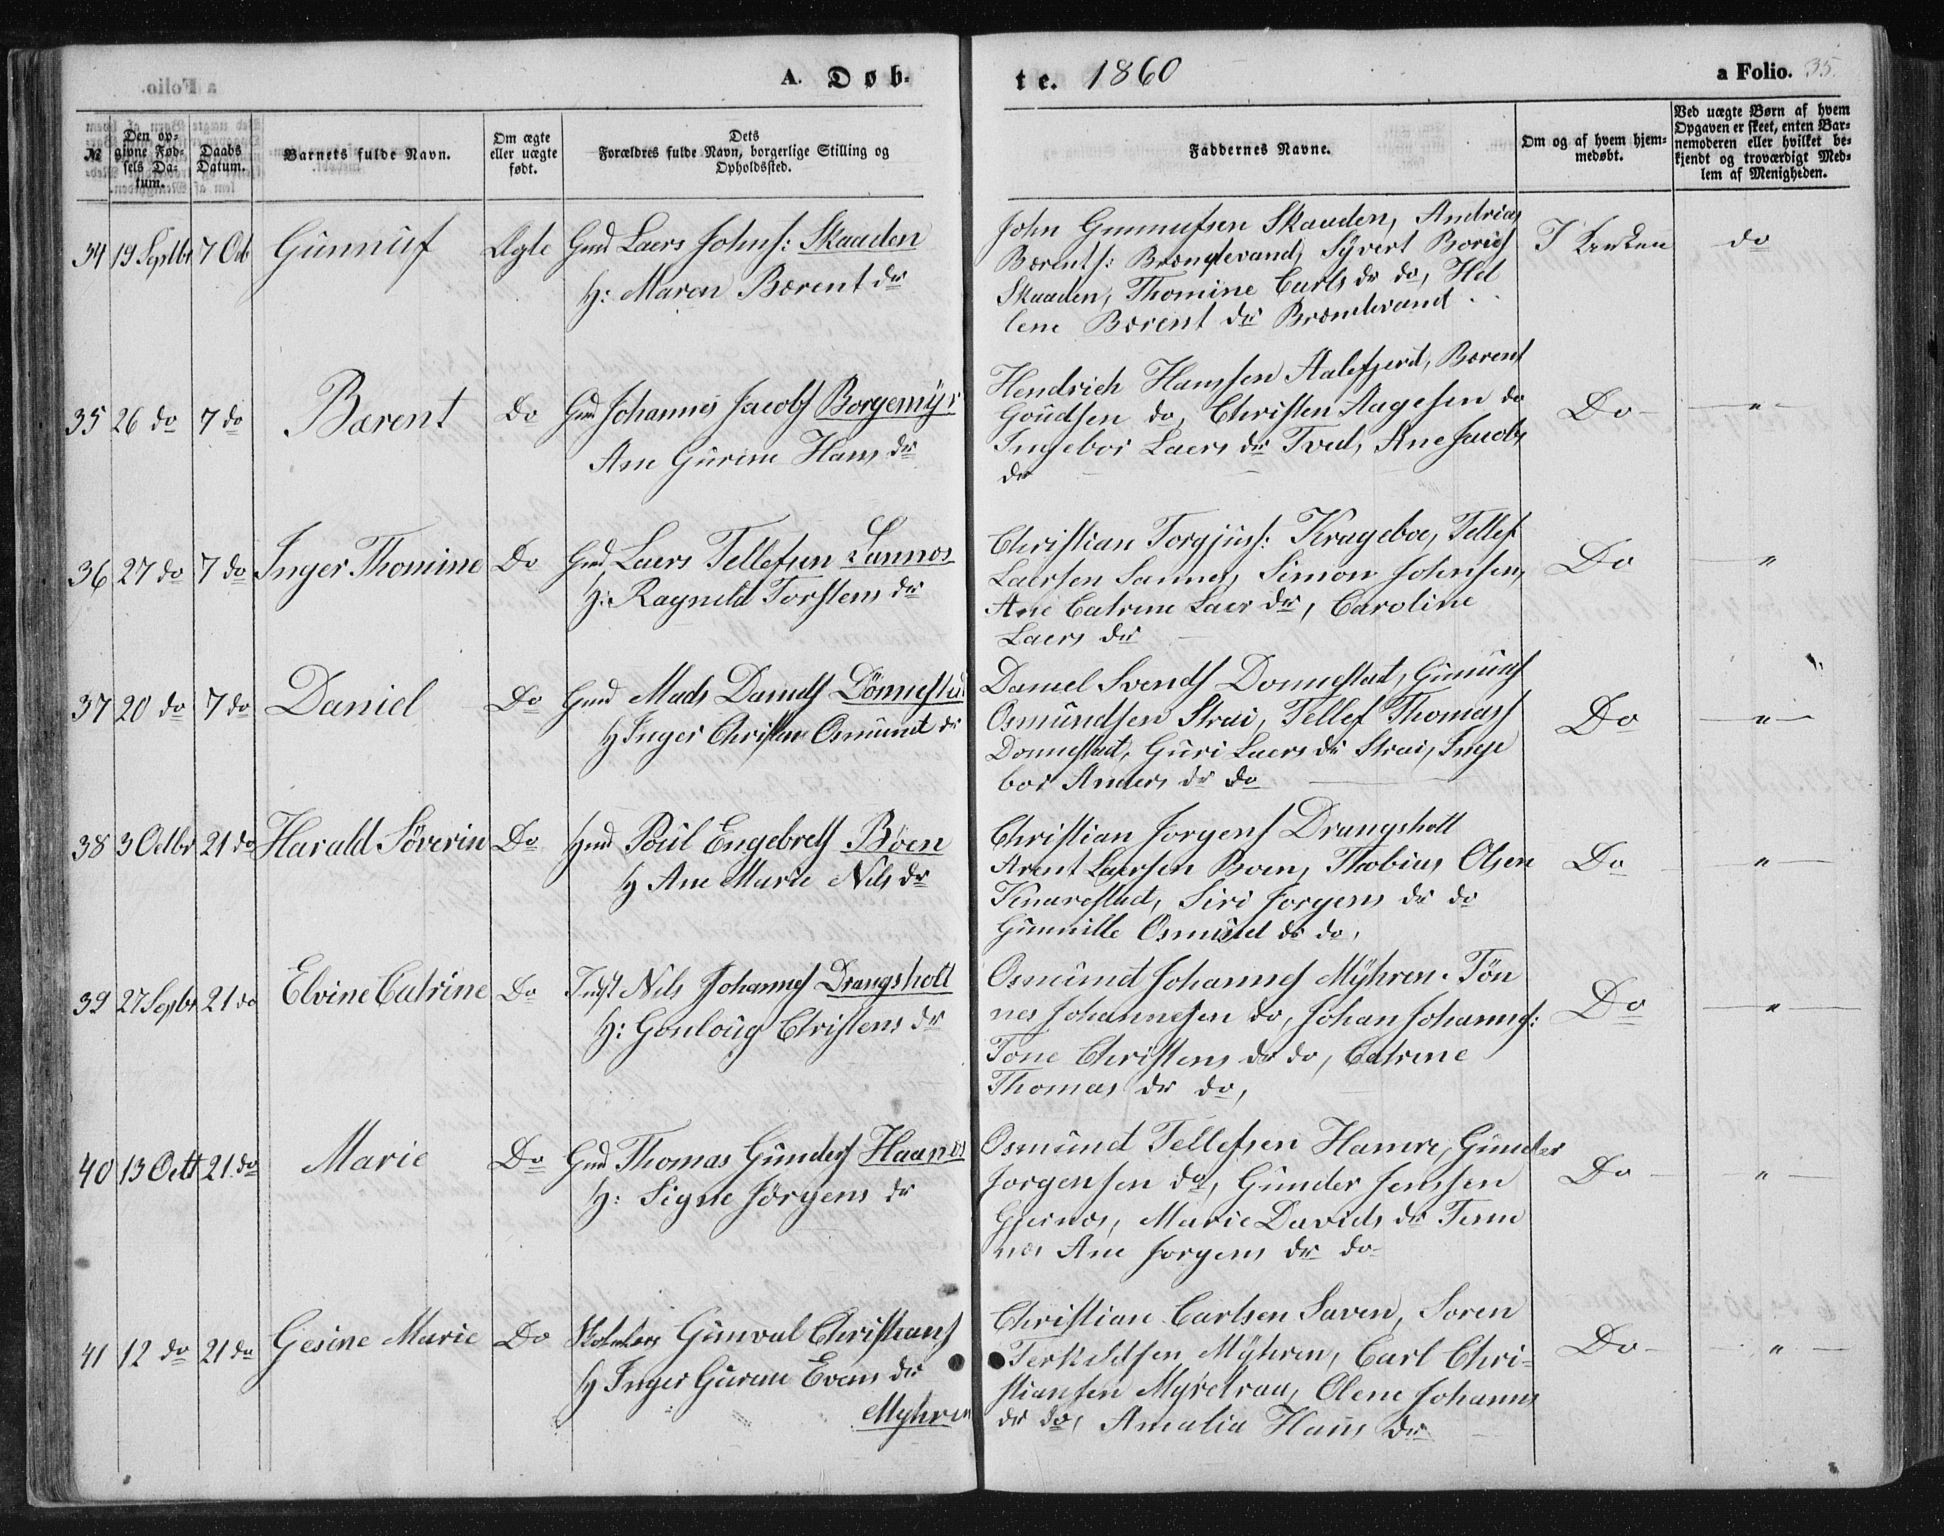 A. Døb-
te. 1860
a Folio. 35.
№
Den op-
givne Fød-
sels Da-
tum.
Daabs
Datum.
Barnets fulde Navn.
Om ægte
eller uægte
født.
Dets
Forældres fulde Navn, borgerlige Stilling og
Opholdssted.
Faddernes Navne.
Om og af hvem hjem-
medøbt.
Ved uægte Børn af hvem
Opgaven er skeet, enten Bar-
nemoderen eller hvilket be-
kjendt og troværdigt Med-
lem af Menigheden.
34 19 Septbr 7 Octb Gunnuf Ægte Gmd Laers Johns: Skaaden
H: Maren Bærent dr
John Gunnufsen Skaaden, Andrias
Bærents: Brændevand, Syvert Bories
Skaaden, Thomine Carls dr do, Hel
lene Bærent dr Brændevand
I Kirken do
35 26 do 7 do Bærent Do Gmd Johannes Jacobs Borgemyr
Ane Gurine Hans dr
Hendrich Hanssen Aalefjærd, Bærent
Goudsen do, Christen Aagesen do
Ingebor Laers dr Tved, Ane Jacobs
dr
Do "
36 27 do 7 do Inger Thomine Do Gmd Laers Tellefsen Sannæs
H: Ragnild Torstens dr
Christian Torgjus: Krageboe, Tellef
Laersen Sannes, Simon Johnsen,
Ane Catrine Laer dr, Caroline
Laers dr
Do "
37 20 do 7 do Daniel Do Gmd Mads Daniels Dönnestad
H Inger Christine Osmund dr
Daniel Svends Donnestad, Gunuf
Osmundsen Strai, Tellef Thomass
Donnestad, Guri Laers dr Strai, Inge
bor Anders dr do
Do "
38 3 Octbr 21 do Harald Söverin Do Hmd Poul Engebrets Böen
H Ane Marie Nils dr
Christian Jorgens Drangsholt
Arent Laersen Boen, Thobias Olsen
Kenarestad, Siri Jorgens dr do
Gunnille Osmund dr do,
Do "
39 27 Septbr 21 do Elvine Catrine Do Inst Nils Johannes Drangsholt
H: Gonloug Christens dr
Osmund Johannes Myhren. Tön
nes Johannesen do, Johan Johannes:
Tone Christens dr do, Catrine
Thomas dr do,
Do "
40 13 Octb 21 do Marie Do Gmd Thomas Gunders Haanes
H: Signe Jörgens dr
Osmund Tellefsen Hamre, Gunder
Jorgensen do, Gunder Jenssen
Gjeinos, Marie Davids dr Teine
næs Ane Jorgens dr do
Do "
41 12 do 21 do Gesine Marie Do Skolelærer Gunval Christians
H Inger Gurine Evens dr
Myhren
Christian Carlsen Saven, Soren
Terkildsen Myhren, Carl Chri-
stiansen Myretraa, Olene Johannes
dr do, Amalia Hans dr
Do "